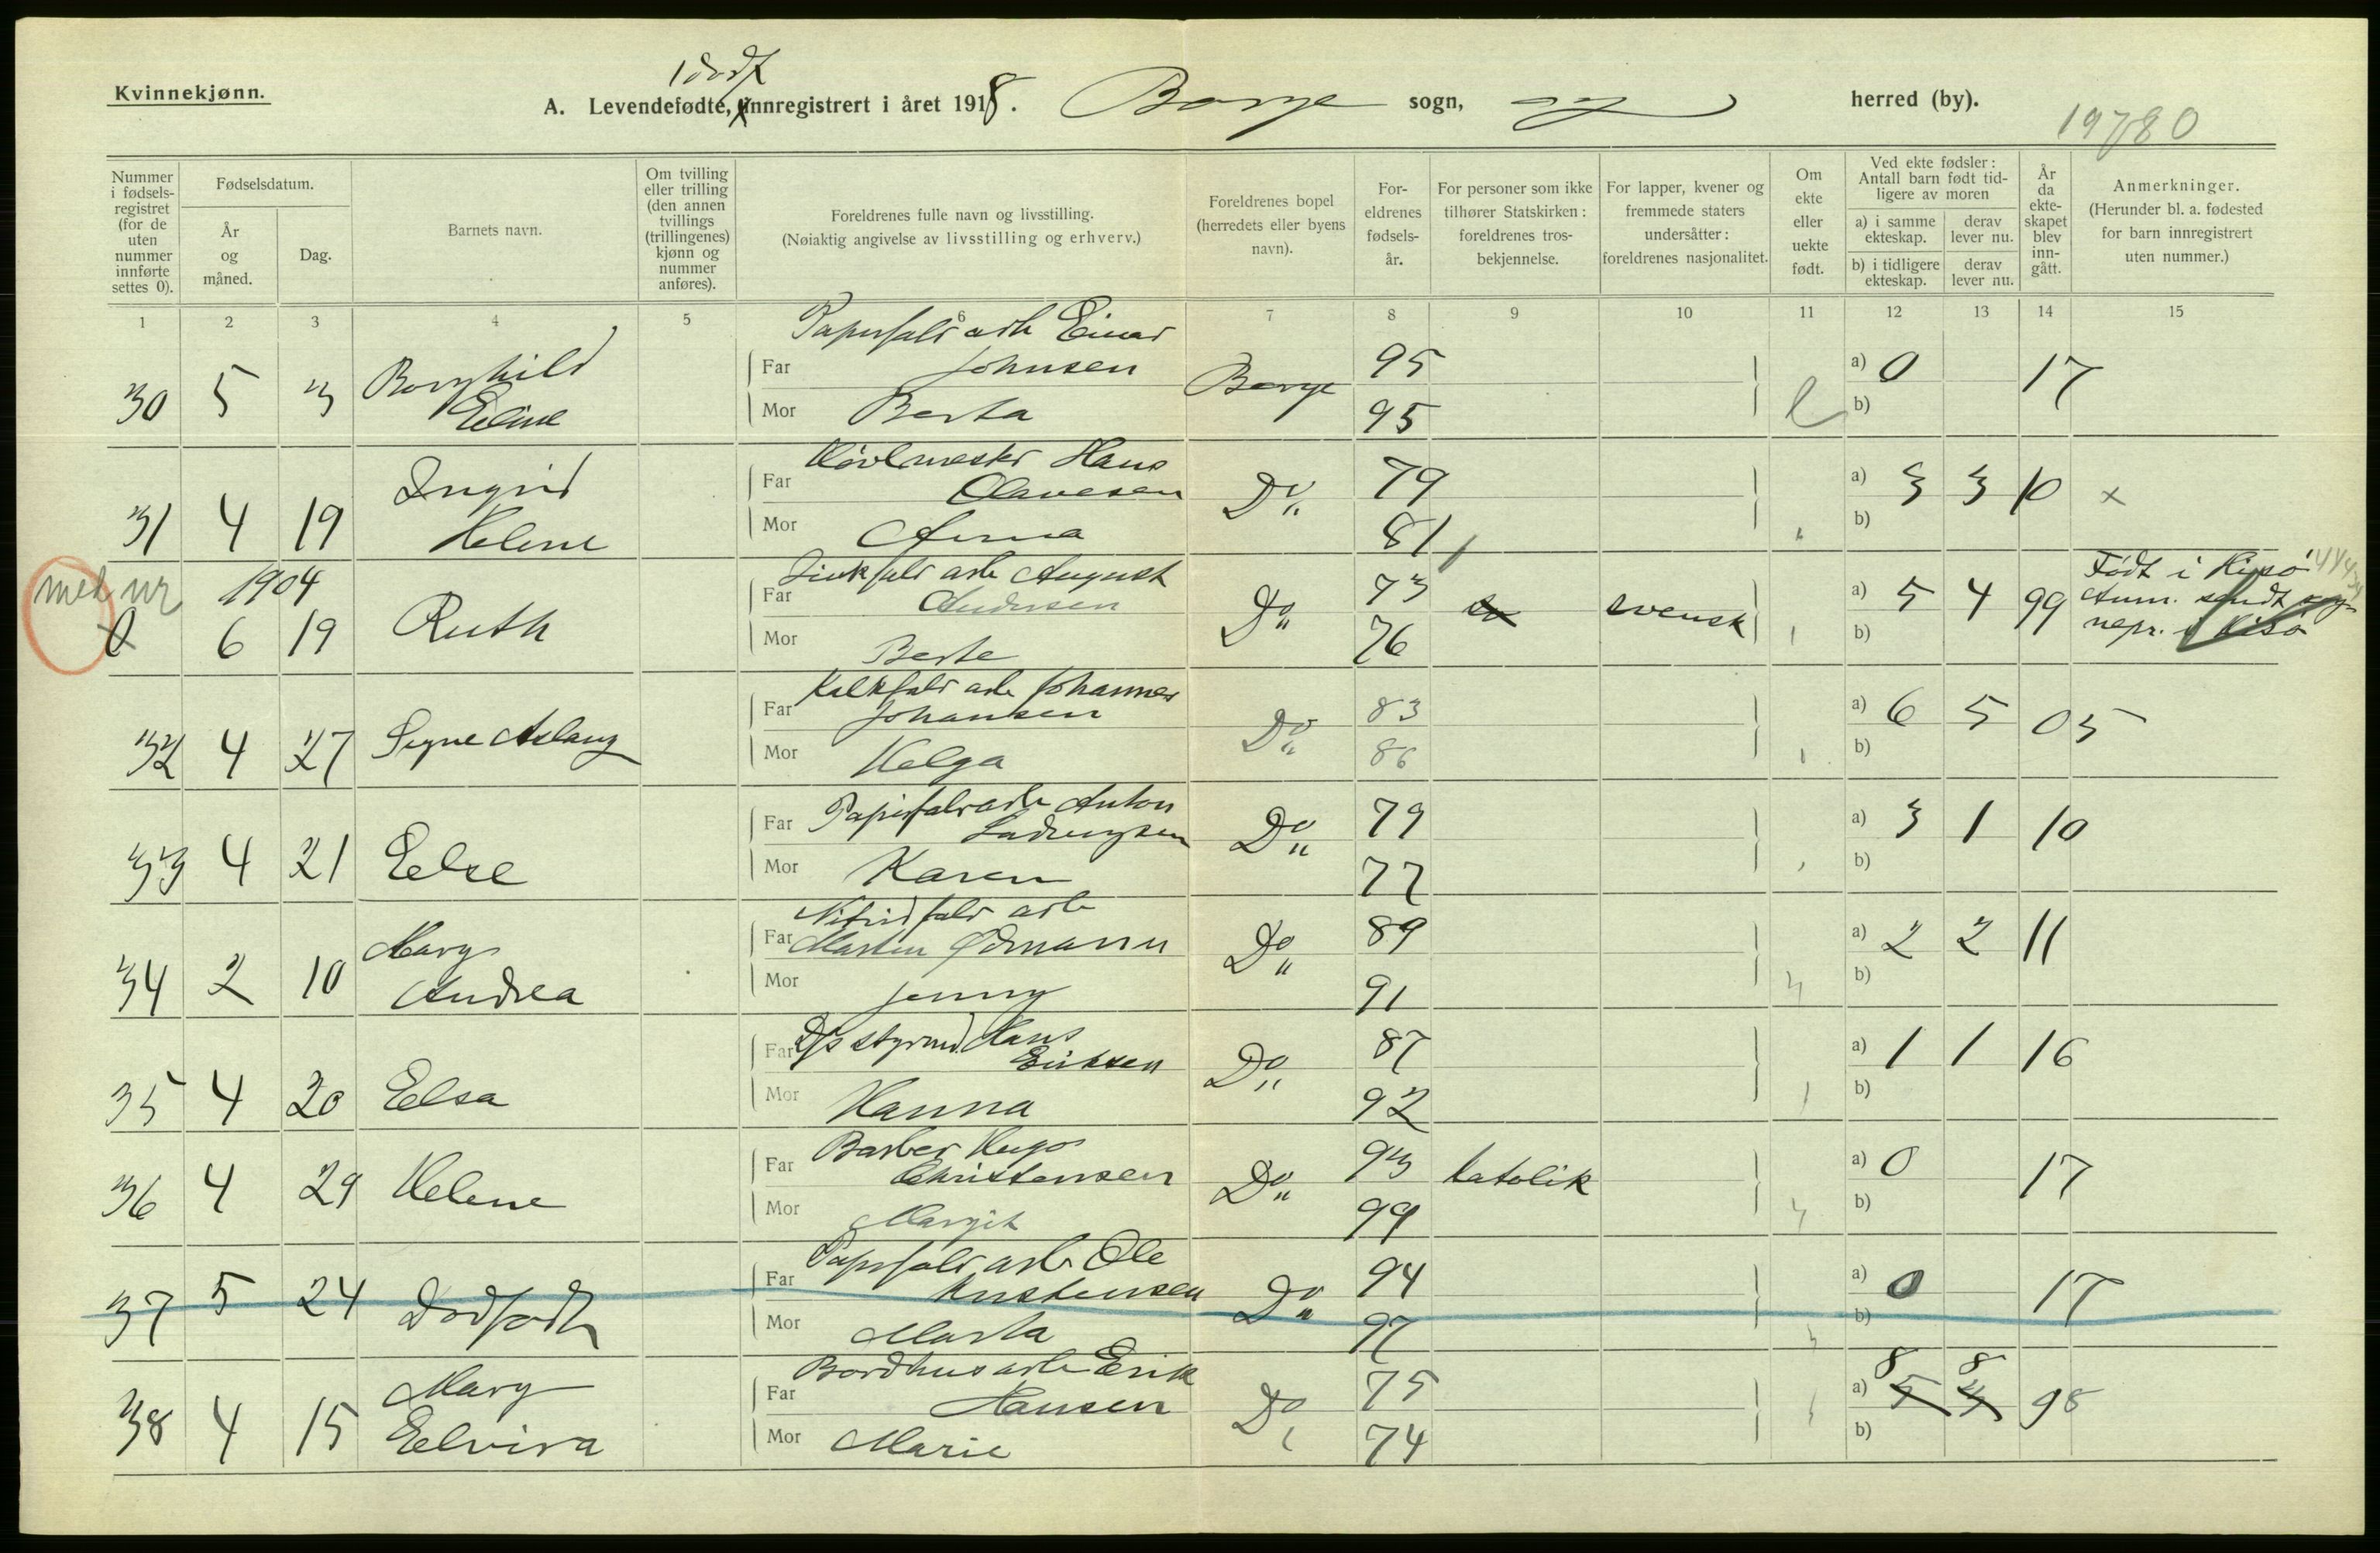 1 dødf
Kvinnekjønn.
A. Levendefødte, innregistrert i året 1918. Borge sogn, herred (by).
19780
Nummer i fødsels-registret (for de uten nummer innførte settes 0).
Fødselsdatum.
År og måned.
Dag.
Barnets navn.
Om tvilling eller trilling (den annen tvillings (trillingenes) kjønn og nummer anføres).
Foreldrenes fulle navn og livsstilling.
(Nøiaktig angivelse av livsstilling og erhverv.)
Foreldrenes bopel (herredets eller byens navn).
For-eldrenes fødsels-år.
For personer som ikke tilhører Statskirken: foreldrenes tros-bekjennelse.
For lapper, kvener og fremmede staters undersåtter: foreldrenes nasjonalitet.
Om ekte eller uekte født.
Ved ekte fødsler: Antall barn født tid-ligere av moren
a) i samme ekteskap.
derav lever nu.
b) i tidligere ekteskap.
derav lever nu.
År da ekte-skapet blev inn-gått.
Anmerkninger.
(Herunder bl. a. fødested for barn innregistrert uten nummer.)
1 2 3 4 5 6 7 8 9 10 11 12 13 14 15
Papirfabr arb Einar
30 5 3 Borghild Far Johnsen Borge 95 a) 0 17
Eline Mor Berta 95 e b)
Høvlmester Hans
Ingrid Far Olavesen Do 79 a) 3 3 10 x
31 4 19 Helene Mor Anna 81 " b)
med nr 1904 Zinkfabr arb August Født i Hisø
0 6 19 Ruth Far Andersen Do 73 svensk a) 5 4 99 Anm. sendt
Mor Berte 76 b) nepr. i Hisø
Kalkfabr arb Johannes
32 4 27 Signe Aslaug Far Johansen Do 83 a) 6 5 05
Mor Helga 86 b)
33 4 21 Else Far Papirfabr arb Anton Ludvigsen Do 79 a) 3 1 10
Mor Karen 77 b)
Nitridfabr arb
34 2 10 Mary Far Martin Ødmann Do 89 a) 2 2 11
Andrea Mor Jenny 91 b)
35 4 20 Elsa Far D/s styrmd. Hans Eriksen Do 87 a) 1 1 16
Mor Hanna 92 b)
36 4 29 Helene Far Barber Hugo Christensen Do 93 katolik a) 0 17
Mor Margit 99 b)
Papirfabr arb Ole
37 5 24 Dødfødt Far Kristensen Do 94 a) 0 17
Mor Marta 97 b)
Bordhus arb Erik 8 8
38 4 15 Mary Far Hansen Do 75 a) 5 4 98
Elvira Mor Marie 74 b)